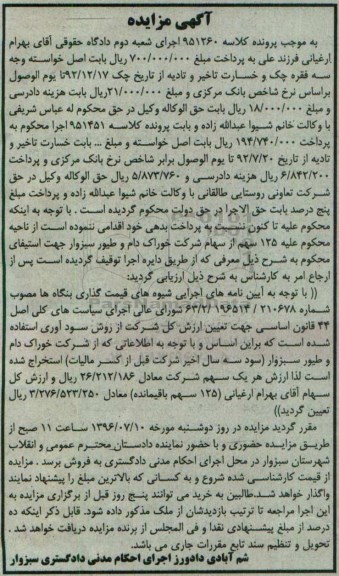 آگهی مزایده
به موجب پرونده کلاسه ۹۵۱۲۶۰ اجرای شعبه دوم دادگاه حقوقی آقای بهرام
ارغیانی فرزند علی به پرداخت مبلغ ۷۰۰/۰۰۰/۰۰۰ ریال بابت اصل خواسته وجه
سه فقره چک و خسارت تاخیر و تادیه از تاریخ چک ۹۲/۱۲/۱۷تا یوم الوصول
براساس نرخ شاخص بانک مرکزی و مبلغ ۲۱/۰۰۰/۰۰۰ریال بابت هزینه دادرسی
و مبلغ ۱۸/۰۰۰/۰۰۰ ریال بابت حق الوکاله وکیل در حق محکوم له عباس شریفی
با وکالت خانم شیوا عبدالله زاده و بابت پرونده کلاسه ۹۵۱۴۵۱ اجرا محکوم به
پرداخت ۱۹۴/۷۴۰/۰۰۰ ریال بابت اصل خواسته و مبلغ ... بابت خسارت تاخیر و
تادیه از تاریخ ۹۲/۷/۲۰ تا یوم الوصول برابر شاخص نرخ بانک مرکزی و پرداخت
۶/۸۴۲/۲۰۰ ریال هزینه دادرسی و ۵/۸۷۳/۷۶۰ ریال حق الوکاله وکیل در حق
شرکت تعاونی روستایی طالقانی با وکالت خانم شیوا عبدالله زاده و پرداخت مبلغ
پنج درصد بابت حق الاجرا در حق دولت محکوم گردیده است . با توجه به اینکه
محکوم علیه تا کنون نسبت به پرداخت بدهی خود اقدامی ننموده است از ناحیه
محکوم علیه ۱۲۵ سهم از سهام شرکت خوراک دام و طیور سبزوار جهت استیفای
محکوم به شرح ذیل معرفی که از طریق دایره اجرا توقیف گردیده است پس از
ارجاع امر به کارشناس به شرح ذیل ارزیابی گردید:
(( با توجه به آیین نامه های اجرایی شیوه های قیمت گذاری بنگاه ها مصوب
شماره ۲۱۰۶۷۸ / ۶۳/۲/۱۹۶۵۱۴ شورای عالی اجرای سیاست های کلی اصل
۴۴ قانون اساسی جهت تعیین ارزش کل شرکت از روش سود آوری استفاده
شده است که براین اساس و با توجه به اطلاعاتی که از شرکت خوراک دام
و طیور سبزوار (سود سه سال اخیر شرکت قبل از کسر مالیات) استخراج شده
است لذا ارزش هر یک سهم شرکت معادل ۲۶/۲۱۲/۱۸۶ ریال و ارزش کل
سهام آقای بهرام ارغیانی (۱۲۵ سهم باقیمانده) معادل ۳/۲۷۶/۵۲۳/۲۵۰ ریال
تعیین گردید))
مقرر گردید مزایده در روز دوشنبه مورخه ۱۳۹۶/۰۷/۱۰ ساعت ۱۱ صبح از
طریق مزایده حضوری و با حضور نماینده دادستان محترم عمومی و انقلاب
شهرستان سبزوار در محل اجرای احکام مدنی دادگستری به فروش برسد . مزایده
از قیمت کارشناسی شده شروع و به کسانی که بالاترین مبلغ را پیشنهاد نمایند
واگذار خواهد شد.طالبین به خرید می توانند پنج روز قبل از برگزاری مزایده به
این اجرا مراجعه تا ترتیب بازدیدشان از ملک مذکور داده شود. قابل ذکر اینکه ده
درصد از مبلغ پیشنهادی نقدا و فی المجلس از برنده مزایده دریافت خواهد شد .
تحویل و تنظیم سند تابع مقررات جاری می باشد.
شم آبادی دادورز اجرای احکام مدنی دادگستری سبزوار